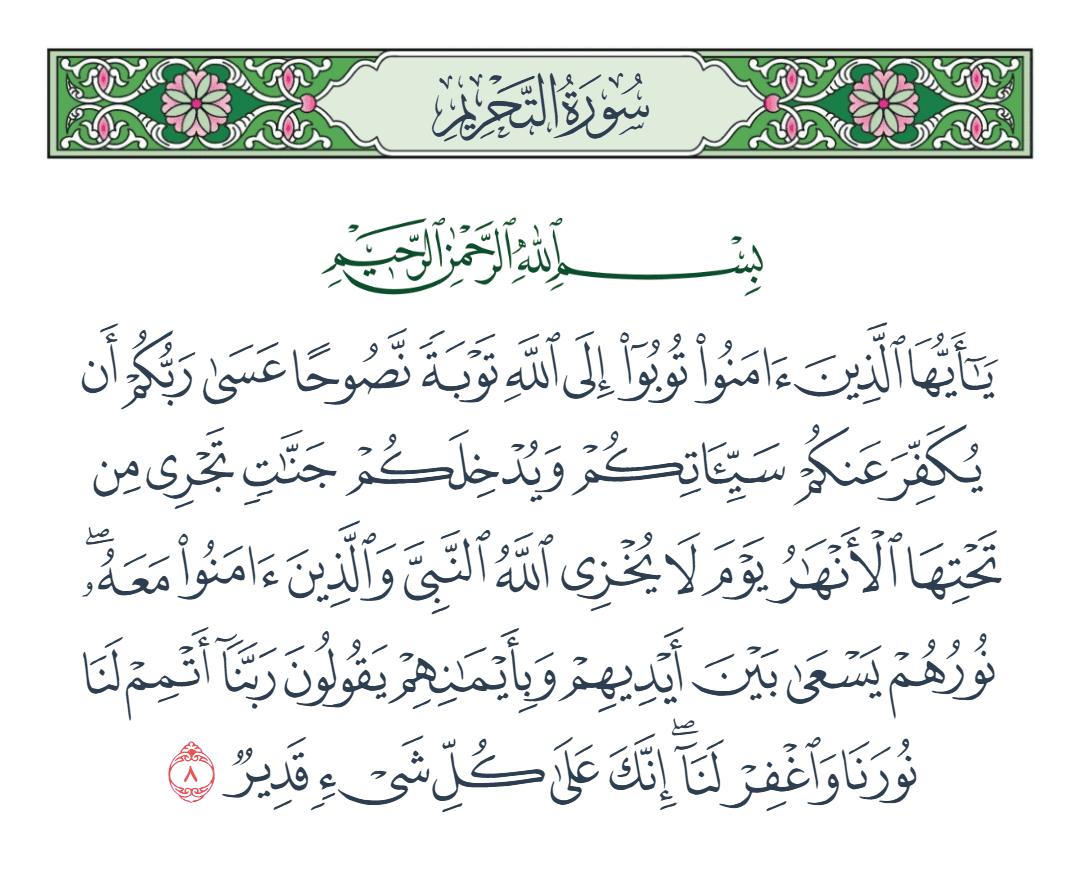 سُورَةُ التَّحۡرِيمِ
بِسۡمِ ٱللَّهِ ٱلرَّحۡمَٰنِ ٱلرَّحِيمِ
يَٰٓأَيُّهَا ٱلَّذِينَ ءَامَنُواْ تُوبُوٓاْ إِلَى ٱللَّهِ تَوۡبَةٗ نَّصُوحًا عَسَىٰ رَبُّكُمۡ أَن
يُكَفِّرَ عَنكُمۡ سَيِّـَٔاتِكُمۡ وَيُدۡخِلَكُمۡ جَنَّٰتٖ تَجۡرِي مِن
تَحۡتِهَا ٱلۡأَنۡهَٰرُ يَوۡمَ لَا يُخۡزِي ٱللَّهُ ٱلنَّبِيَّ وَٱلَّذِينَ ءَامَنُواْ مَعَهُۥۖ
نُورُهُمۡ يَسۡعَىٰ بَيۡنَ أَيۡدِيهِمۡ وَبِأَيۡمَٰنِهِمۡ يَقُولُونَ رَبَّنَآ أَتۡمِمۡ لَنَا
نُورَنَا وَٱغۡفِرۡ لَنَآۖ إِنَّكَ عَلَىٰ كُلِّ شَيۡءٖ قَدِيرٞ ٨